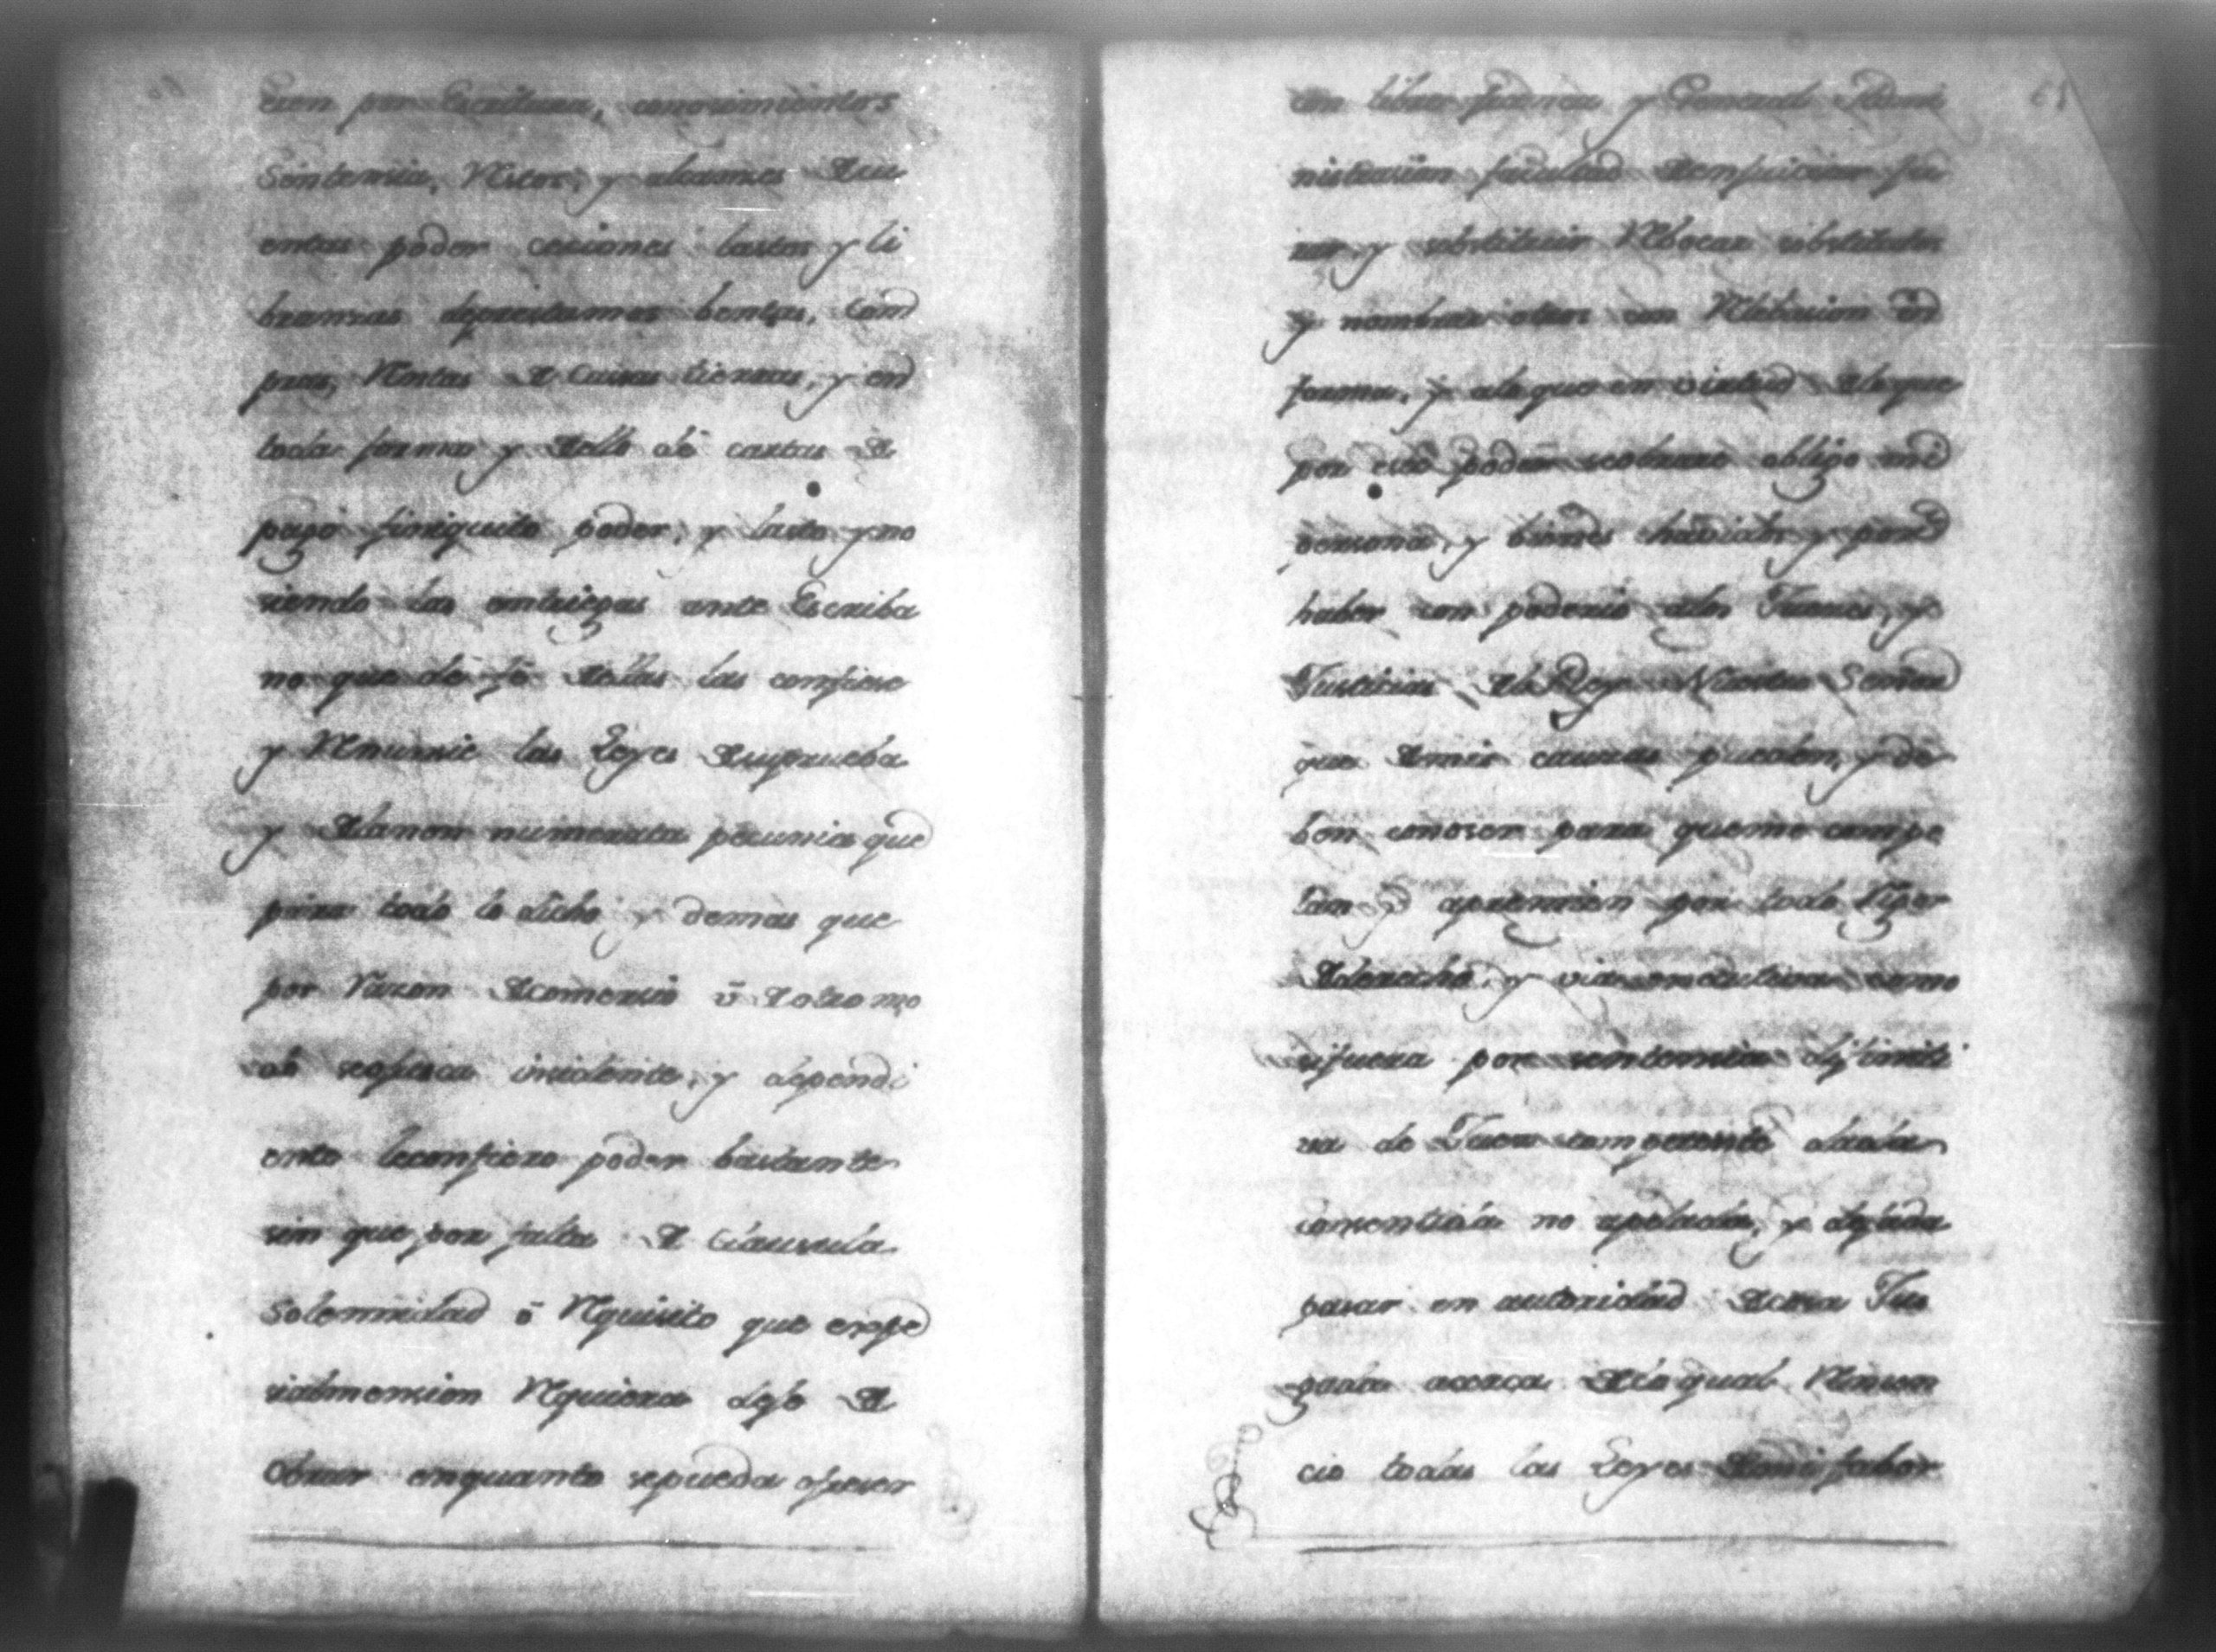 por Escritura, conosimientos
Sentencia, Restos, y alcanses de cu
entas poder cesiones lastos y li
branzas deprestamos bentas, com
pras, Rentas de Casas tierras, y en
toda forma y dello dé cartas de
pago finiquito poder, y lasto y no
siendo las entriegas ante Escriba
no que de fé dellas las confiese
y Renuncie las Leyes desuprueba
y dela non numerata pecunia que
para todo lo dicho y demas que
por Razon de comersio ó de otro mo
do seofresca insidente, y dependi
ente leconfiero poder bastante
sin que por falta de Clausula
Solemnidad ó Requisito que expe
sialmension Requiera deje de
Obrar enquanto sepueda ofreser
con libre franca y General Admi
nistrasion facultad deenjuiciar ju
rar y substituir Rebocar substitutos
y nombrar otros con Relebasion en
forma, y alo que en virtud delo que
por este poder seobrare obligo mi
persona, y bienes habidos y por
haber con poderio alos Jueses, y
Justicias del Rey Nuestro Señor
que demis causas puedan, y de
ban conoser para queme compe
lan y apremien por todo Rigor
de derecho, y via executiva como
sifuera por sentencia difiniti
va de Juez competente dada
consentida no apelada, y dejada
pasar en autoridad decosa Jus
gada aserca delo qual Renun
cio todas las Leyes demi fabor